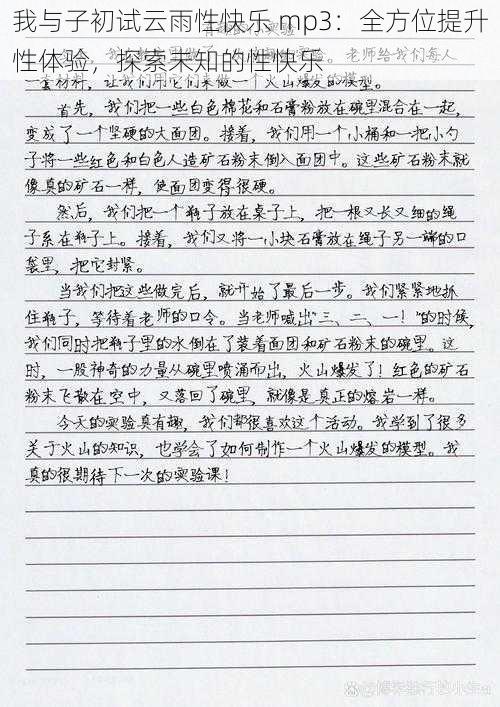 我与子初试云雨性快乐 mp3：全方位提升
性体验，探索未知的性快乐
老师给我们每人
一套材料，让我们用它们来做一个火山爆发的模型。
首先，我们把一些白色棉花和石膏粉放在碗里混合在一起，
变成了一个坚硬的大面团。接着，我们用一个小桶和一把小勺
子将一些红色和白色人造矿石粉末倒入面团中。这些矿石粉末就
像真的矿石一样，使面团变得很硬。
然后，我们把一个瓶子放在桌子上，把一根又长又细的绳
子系在瓶子上。接着，我们又将一小块石膏放在绳子另一端的口
袋里，把它封紧。
当我们把这些做完后，就开始了最后一步。我们紧紧地抓
住瓶子，等待着老师的口令。当老师喊出“三、二、一！”的时候，
我们同时把瓶子里的水倒在了装着面团和矿石粉末的碗里。这
时，一股神奇的力量从碗里喷涌而出，火山爆发了！红色的矿石
粉末飞散在空中，又落回了碗里，就像是真正的熔岩一样。
今天的实验真有趣，我们都很喜欢这个活动。我学到了很多
关于火山的知识，也学会了如何制作一个火山爆发的模型。我
真的很期待下一次的实验课！